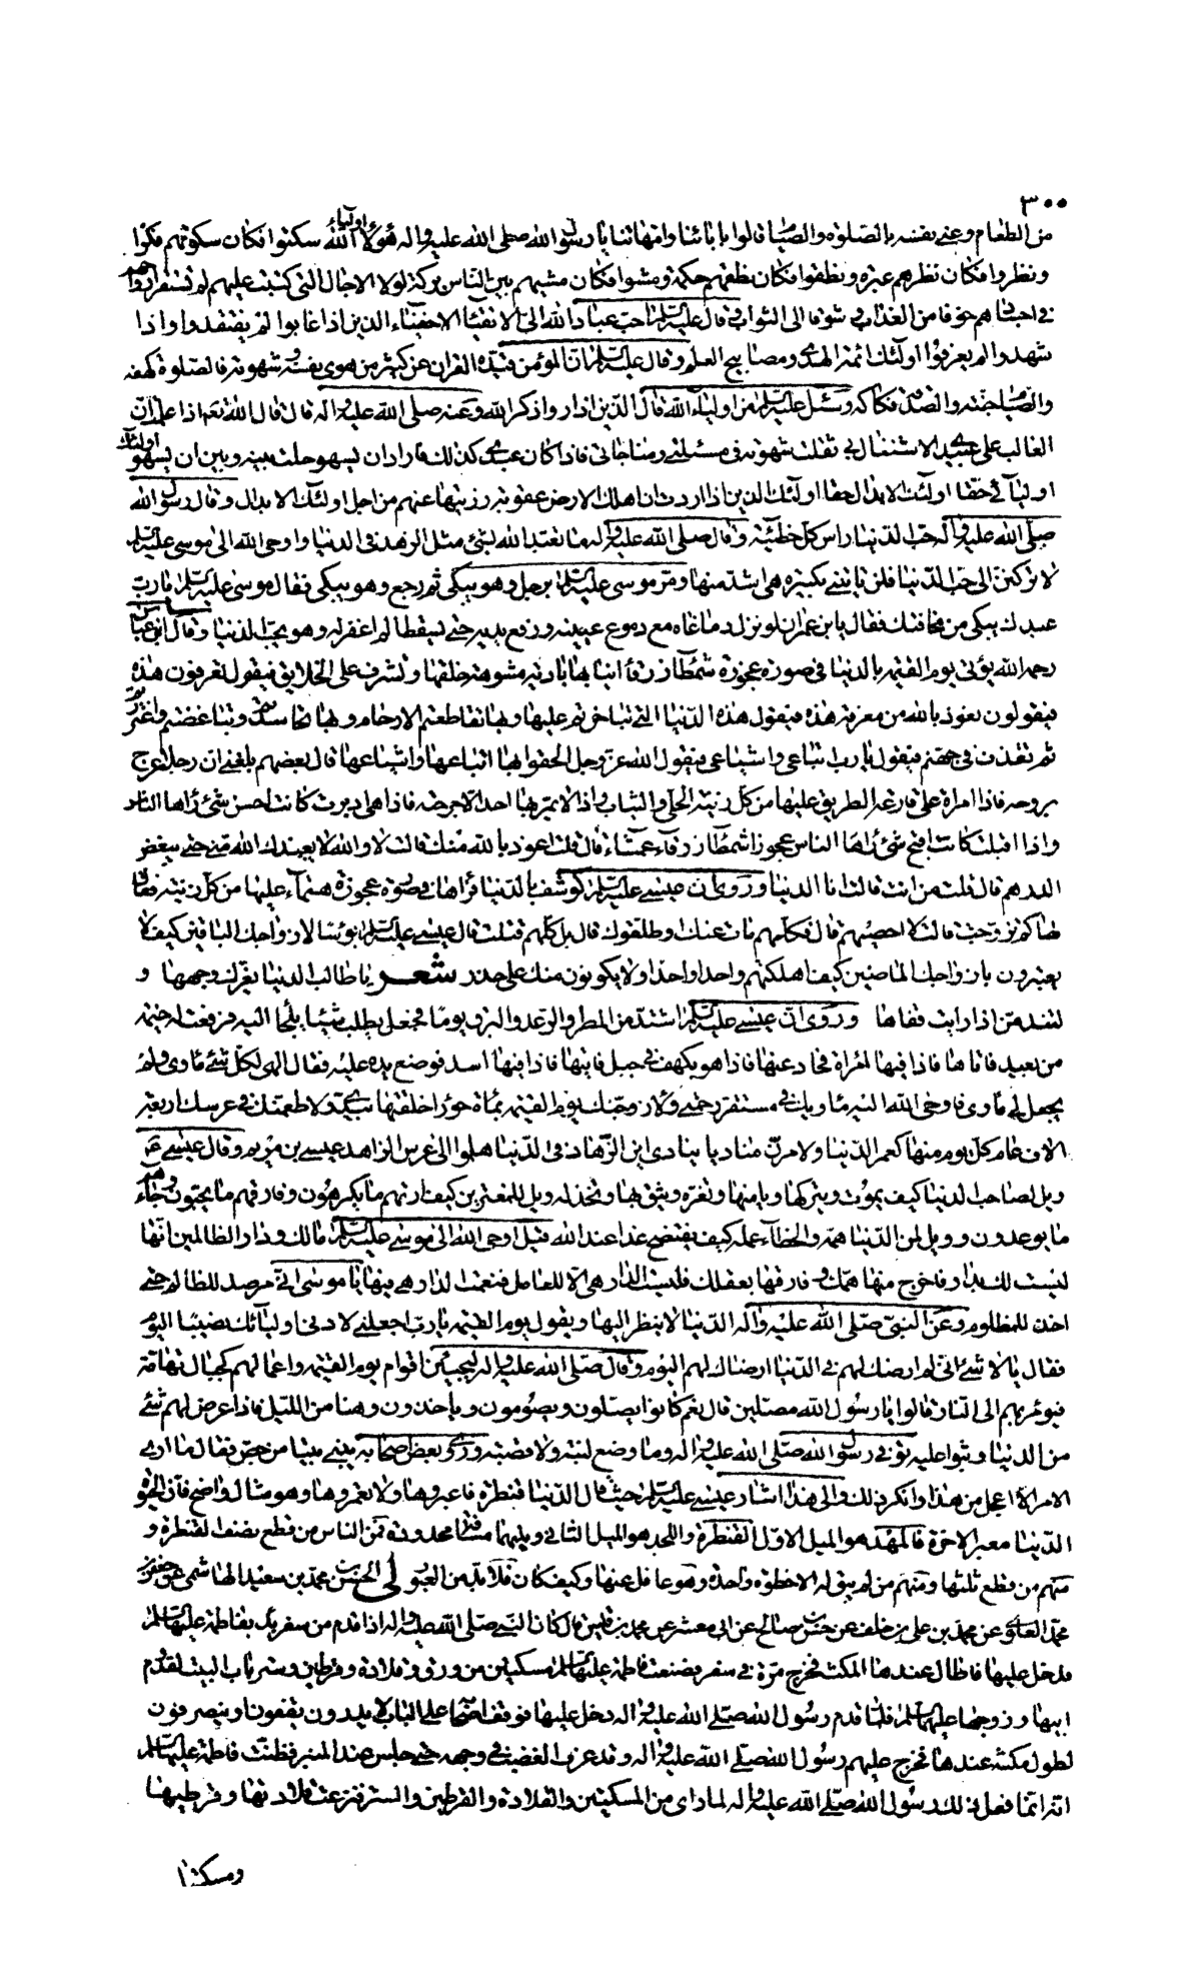 ٣٠٠
من الطعام وعنى نفسه بالصلوة والصيام قالوا بابائنا وامهاتنا يا رسول الله صلى الله عليه واله هؤلاء اولياء الله سكتوا فكان سكوتهم فكرا
ونظروا فكان نظرهم عبرة ونطقوا فكان نطقهم حكمة ومشوا فكان مشيهم بين الناس بركة لولا الاجال التي كتبت عليهم لم تستقر ارواحهم
في اجسادهم خوفا من العذاب وشوقا الى الثواب وقال عليه السلم احب عباد الله الى الله الاتقياء الاخفياء الذين اذا غابوا لم يفتقدوا واذا
شهدوا لم يعرفوا اولئك ائمة الهدى ومصابيح العلم وقال عليه السلم ان المؤمن قيده القران عن كثير من هوى نفسه وشهوته فالصلوة كهفه
والصيام جنته والصدقة فكاكه وسئل عليه السلم من اولياء الله قال الذين اذا رؤا ذكر الله وعنه صلى الله عليه واله قال قال الله تعه اذا علمت ان
الغالب على عبدي الاشتغال بي نقلت شهوته في مسئلتي ومناجاتي فاذا كان عبدي كذلك فاراد ان يسهو حلت بينه وبين ان يسهو اولئك
اوليائي حقا اولئك الابدال حقا اولئك الذين اذا اردت ان اهلك الارض عقوبة زويتها عنهم من اجل اولئك الابدال وقال رسول الله
صلى الله عليه واله حب الدنيا راس كل خطيئة وقال صلى الله عليه واله ما تعبد الله بشئ مثل الزهد في الدنيا واوحى الله الى موسى عليه السلم
لا تركنن الى حب الدنيا فلن تاتيني بكبيرة هي اشد منها ومر موسى عليه السلم برجل وهو يبكي ثم رجع وهو يبكي فقال موسى عليه السلم يا رب
عبدك يبكي من مخافتك فقال يا بن عمران لو نزل دماغه مع دموع عينيه ورفع يديه حتى تسقطا لم اغفر له وهو يحب الدنيا وقال ابن عباس
رحمه الله يؤتى يوم القيمة بالدنيا في صورة عجوزة شمطاء زرقاء انيابها بادية مشوهة خلقها وتشرف على الخلايق فيقول تعرفون هذه
فيقولون نعوذ بالله من معرفة هذه فيقول هذه الدنيا التي تفاخرتم عليها وبها تقاطعتم الارحام وبها تحاسدتم وتباغضتم واغتررتم
ثم تقذف في جهنم فيقول يا رب اتباعي واشياعي فيقول الله عز وجل الحقوا بها اتباعها واشياعها قال بعضهم بلغني ان رجلا عرج
بروحه فاذا امراة على قارعة الطريق عليها من كل زينة الحلي والثياب واذا لا يمر بها احد الا جرحته فاذا هي ادبرت كانت احسن شئ راها الناس
واذا اقبلت كانت اقبح شئ راها الناس عجوزا شمطاء زرقاء عمشاء قال قلت اعوذ بالله منك قالت لا والله لا يعيذك الله مني حتى تبغض
الدرهم قال قلت من انت قالت انا الدنيا وروى ان عيسى عليه السلم كوشف بالدنيا فراها في صورة عجوزة هتماء عليها من كل زينة فقال
لها كم تزوجت قالت لا احصيهم قال فكلهم مات عنك او طلقوك قال بل كلهم قتلت قال عيسى عليه السلم بؤسا لازواجك الباقين كيف لا
يعتبرون بازواجك الماضين كيف اهلكتهم واحدا واحدا ولا يكونون منك على حذر شعر يا طالب الدنيا يغرك وجهها و
لتندمن اذا رايت قفاها وروى ان عيسى عليه السلم اشتد من المطر والرعد والبرق يوما فجعل يطلب شيئا يلجا اليه فرفعت له خيمة
من بعيد فاتاها فاذا فيها امراة فحاد عنها فاذا هو بكهف في جبل فاتيها فاذا فيها اسد فوضع يده عليه فقال الهي لكل شئ ماوى ولم
يجعل لي ماوى فاوحى الله اليه ماويك في مستقر رحمتي ولازوجنك يوم القيمة بماة حورا خلقتها بيدي ولاطعمنك في عرسك اربعة
الاف عام كل يوم منها كعمر الدنيا ولامرن مناديا ينادي اين الزهاد في الدنيا هلموا الى عرس الزاهد عيسى بن مريم وقال عيسى ع
ويل لصاحب الدنيا كيف يموت ويتركها ويامنها وتغره ويثق بها وتخذله ويل للمغترين كيف ارتهم ما يكرهون وفارقهم ما يحبون وجاءهم
ما يوعدون وويل لمن الدنيا همه والخطاء عمله كيف يفتضح غدا عند الله قيل اوحى الله الى موسى عليه السلم مالك ودار الظالمين انها
ليست لك بدار فاخرج منها همك وفارقها بعقلك فلبئست الدار هي الا للعامل فنعمت الدار هي فيها يا موسى اني مرصد للظالم حتى
اخذ للمظلوم وعن النبي صلى الله عليه واله الدنيا لا ينظر اليها ويقول يوم القيمة يا رب اجعلني لادنى اوليائك نصيبا اليوم
فقال يا لا شئ اني لم ارضك لهم في الدنيا ارضاك لهم اليوم وقال صلى الله عليه واله ليجيئن اقوام يوم القيمة واعمالهم كجبال تهامة
فيؤمر بهم الى النار قالوا يا رسول الله مصلين قال نعم كانوا يصلون ويصومون وياخذون وهنا من الليل فاذا عرض لهم شئ
من الدنيا وثبوا عليه توفي رسول الله صلى الله عليه واله وما وضع لبنة ولا قصبة وراى بعض اصحابه يبني بيتا من جص فقال ما ارى
الامر الا اعجل من هذا وانكر ذلك والى هذا اشار عيسى عليه السلم حيث قال الدنيا قنطرة فاعبروها ولا تعمروها وهو مثال واضح فان الحيوة
الدنيا معبر الاخرة فالمهد هو الميل الاول القنطرة واللحد هو الميل الثاني وبينهما مسافة محدودة فمن الناس من قطع نصف القنطرة و
منهم من قطع ثلثها ومنهم من لم يبق له الا خطوة واحدة وهو غافل عنها وكيف كان فلا بد من العبور لي الحسن محمد بن سعيد الهاشمي عن جعفر بن
محمد العلوي عن محمد بن علي بن خلف عن حسن بن صالح عن ابي معشر عن محمد بن قيس قال كان النبي صلى الله عليه واله اذا قدم من سفر بدا بفاطمة عليها السلم
فدخل عليها فاطال عندها المكث فخرج مرة في سفر فصنعت فاطمة عليها السلم مسكتين من ورق وقلادة وقرطين وستر باب البيت لقدوم
ابيها وزوجها عليهما السلم فلما قدم رسول الله صلى الله عليه واله دخل عليها فوقف اصحابه على الباب لا يدرون يقفون او ينصرفون
لطول مكثه عندها فخرج عليهم رسول الله صلى الله عليه واله وقد عرف الغضب في وجهه حتى جلس عند المنبر فظنت فاطمة عليها السلم
انه انما فعل ذلك رسول الله صلى الله عليه واله لما راى من المسكتين والقلادة والقرطين والستر فنزعت قلادتها وقرطيها
ومسكتيها